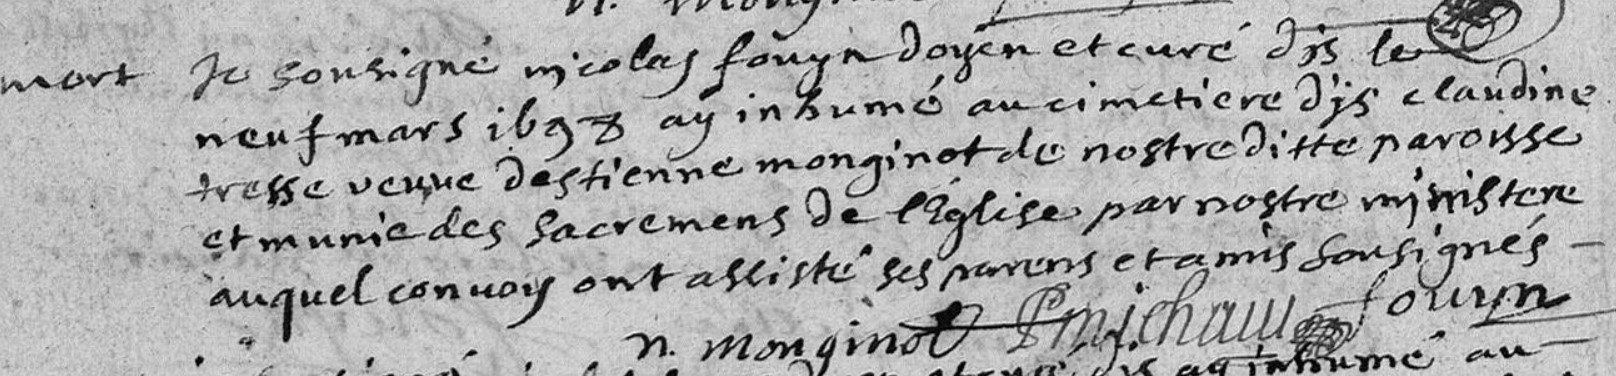 n. monginot
mort Je sousigné nicolas fouyn doyen et curé d'is le
neuf mars 1698 ay inhumé au cimetiere d'is claudine
tresse veuve destienne monginot de nostre ditte paroisse
et munie des sacremens de l'Eglise par nostre ministere
auquel convoy ont assisté ses parens et amis sousignés
n. monginot P michau fouyn
dis ay inhumé au